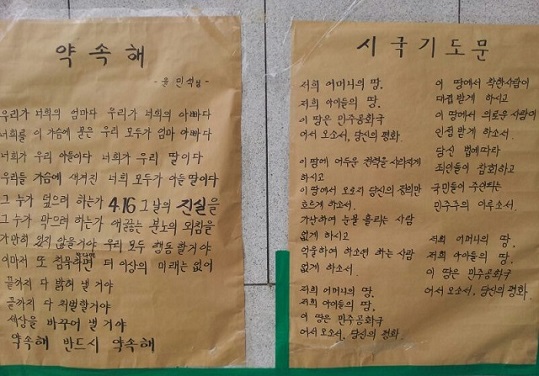 약속해
- 윤민석님
우리가 너희의 엄마다 우리가 너희의 아빠다
너희를 이 가슴에 묻은 우리 모두가 엄마 아빠다
너희가 우리 아들이다 너희가 우리 딸이다
우리들 가슴에 새겨진 너희 모두가 아들 딸이다
그 누가 덮으려 하는가 416 그날의 진실을
그 누가 막으려 하는가 애끓는 분노의 외침을
가만히 있지 않을거야 우리 모두 행동할거야
이마저 또 침묵하면 더 이상의 미래는 없어
끝까지 다 밝혀 낼 거야
끝까지 다 처벌할거야
세상을 바꾸어 낼 거야
약속해 반드시 약속해
시국기도문
저희 어머니의 땅,
저희 아이들의 땅,
이 땅은 민주공화국
어서 오소서, 당신의 평화
이 땅에 어두운 권력을 사라지게
하시고
이 땅에서 오로지 당신의 권능만
흐르게 하소서.
가난하여 눈물 흘리는 사람
없게 하시고
억울하여 하소연 하는 사람
없게 하소서.
저희 어머니의 땅,
저희 아이들의 땅,
이 땅은 민주공화국
어서 오소서, 당신의 평화
이 땅에서 착한 사람이
대접 받게 하시고
이 땅에서 의로운 사람이
인정 받게 하소서.
당신 법에 따라
죄인들이 참회하고
국민들이 주인되는
민주주의 이루소서.
저희 어머니의 땅,
저희 아이들의 땅,
이 땅은 민주공화국
어서 오소서, 당신의 평화.